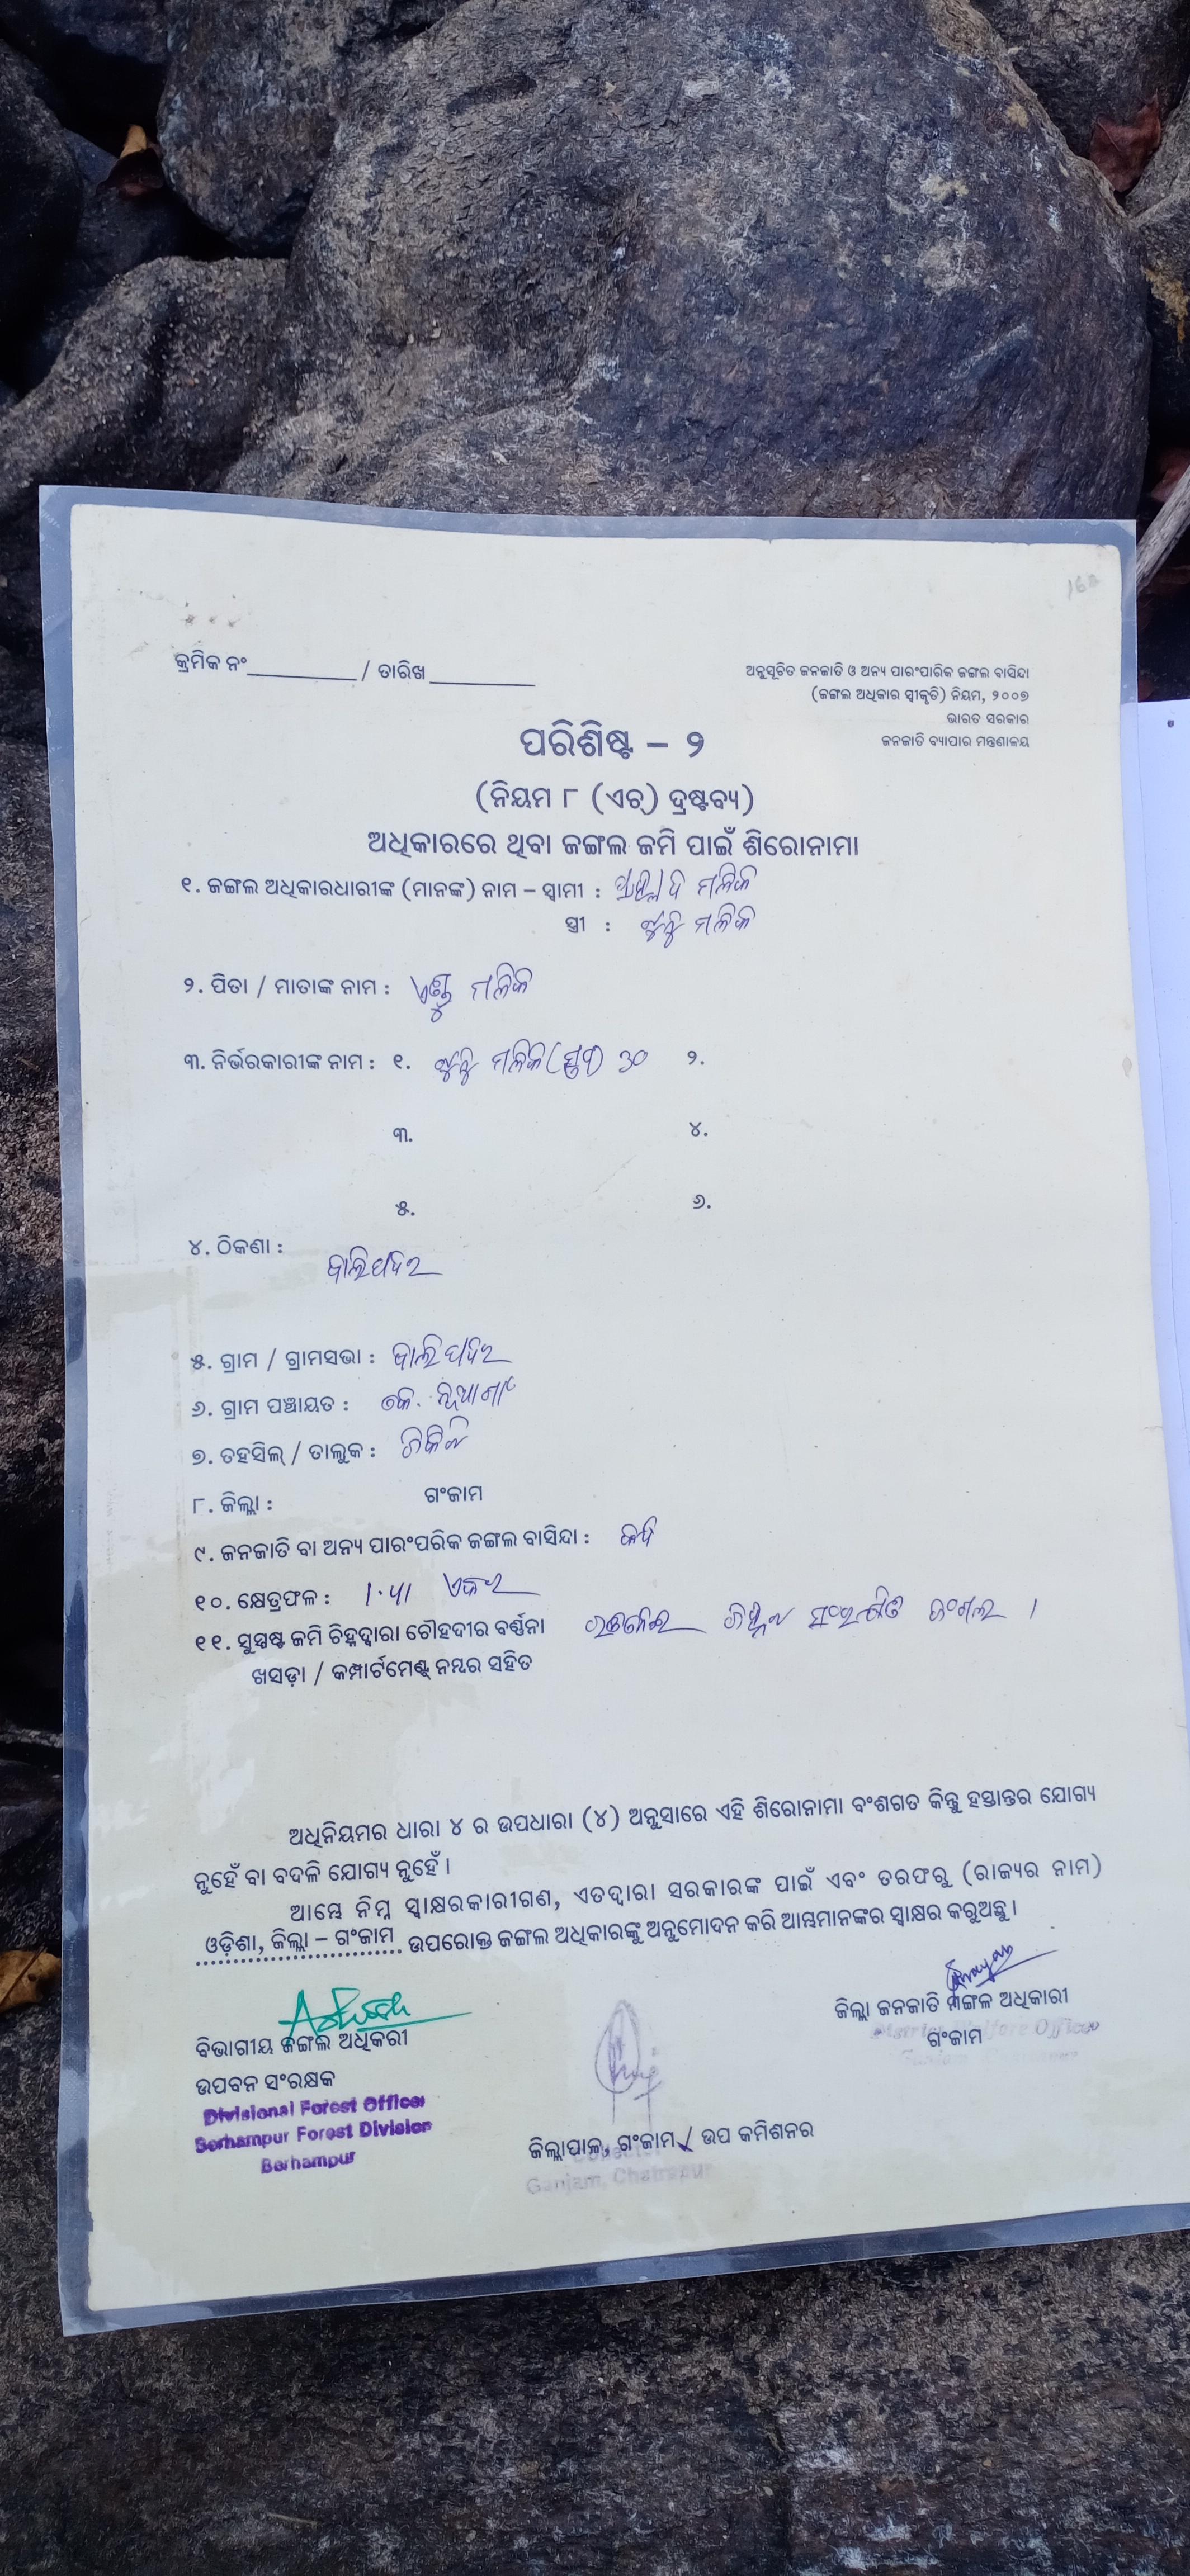 କ୍ରମିକ ନଂ__________ / ତାରିଖ__________
ଅନୁସୂଚିତ ଜନଜାତି ଓ ଅନ୍ୟ ପାରଂପାରିକ ଜଙ୍ଗଲ ବାସିନ୍ଦା
(ଜଙ୍ଗଲ ଅଧିକାର ସ୍ୱୀକୃତି) ନିୟମ, ୨୦୦୭
ଭାରତ ସରକାର
ଜନଜାତି ବ୍ୟାପାର ମନ୍ତ୍ରଣାଳୟ
ପରିଶିଷ୍ଟ – ୨
(ନିୟମ ୮ (ଏଚ୍) ଦ୍ରଷ୍ଟବ୍ୟ)
ଅଧିକାରରେ ଥିବା ଜଙ୍ଗଲ ଜମି ପାଇଁ ଶିରୋନାମା
୧. ଜଙ୍ଗଲ ଅଧିକାରଧାରୀଙ୍କ (ମାନଙ୍କ) ନାମ – ସ୍ୱାମୀ : ମଳିକ
ସ୍ତ୍ରୀ : ମଳିକ
୨. ପିତା / ମାତାଙ୍କ ନାମ : ମଳିକ
୩. ନିର୍ଭରକାରୀଙ୍କ ନାମ : ୧. ମଳିକ ୩୦ ୨.
୩. ୪.
୫. ୬.
୪. ଠିକଣା :
ବାଲିପଦର
୫. ଗ୍ରାମ / ଗ୍ରାମସଭା : ବାଲିପଦର
୬. ଗ୍ରାମ ପଞ୍ଚାୟତ : କେ. ନୂଆଗାଁ
୭. ତହସିଲ୍ / ତାଲୁକ : ଚିକିଟି
୮. ଜିଲ୍ଲା : ଗଂଜାମ
୯. ଜନଜାତି ବା ଅନ୍ୟ ପାରଂପରିକ ଜଙ୍ଗଲ ବାସିନ୍ଦା :
୧୦. କ୍ଷେତ୍ରଫଳ : ଏକର
୧୧. ସୁସ୍ପଷ୍ଟ ଜମି ଚିହ୍ନଦ୍ୱାରା ଚୌହଦୀର ବର୍ଣ୍ଣନା ସଂରକ୍ଷିତ ଜଂଗଲ ।
ଖସଡ଼ା / କମ୍ପାର୍ଟମେଣ୍ଟ୍ ନମ୍ବର ସହିତ
ଅଧିନିୟମର ଧାରା ୪ ର ଉପଧାରା (୪) ଅନୁସାରେ ଏହି ଶିରୋନାମା ବଂଶଗତ କିନ୍ତୁ ହସ୍ତାନ୍ତର ଯୋଗ୍ୟ
ନୁହେଁ ବା ବଦଳି ଯୋଗ୍ୟ ନୁହେଁ ।
ଆମ୍ଭେ ନିମ୍ନ ସ୍ୱାକ୍ଷରକାରୀଗଣ, ଏତଦ୍ୱାରା ସରକାରଙ୍କ ପାଇଁ ଏବଂ ତରଫରୁ (ରାଜ୍ୟର ନାମ)
ଓଡ଼ିଶା, ଜିଲ୍ଲା – ଗଂଜାମ ଉପରୋକ୍ତ ଜଙ୍ଗଲ ଅଧିକାରଙ୍କୁ ଅନୁମୋଦନ କରି ଆମ୍ଭମାନଙ୍କର ସ୍ୱାକ୍ଷର କରୁଅଛୁ ।
ଜିଲ୍ଲା ଜନଜାତି ମଙ୍ଗଳ ଅଧିକାରୀ
ଗଂଜାମ
District Welfare Officer
ବିଭାଗୀୟ ଜଙ୍ଗଲ ଅଧିକରୀ
ଉପବନ ସଂରକ୍ଷକ
Divisional Forest Officer
Berhampur Forest Division
Berhampur
ଜିଲ୍ଲାପାଳ, ଗଂଜାମ / ଉପ କମିଶନର
Collector
Ganjam, Chatrapur